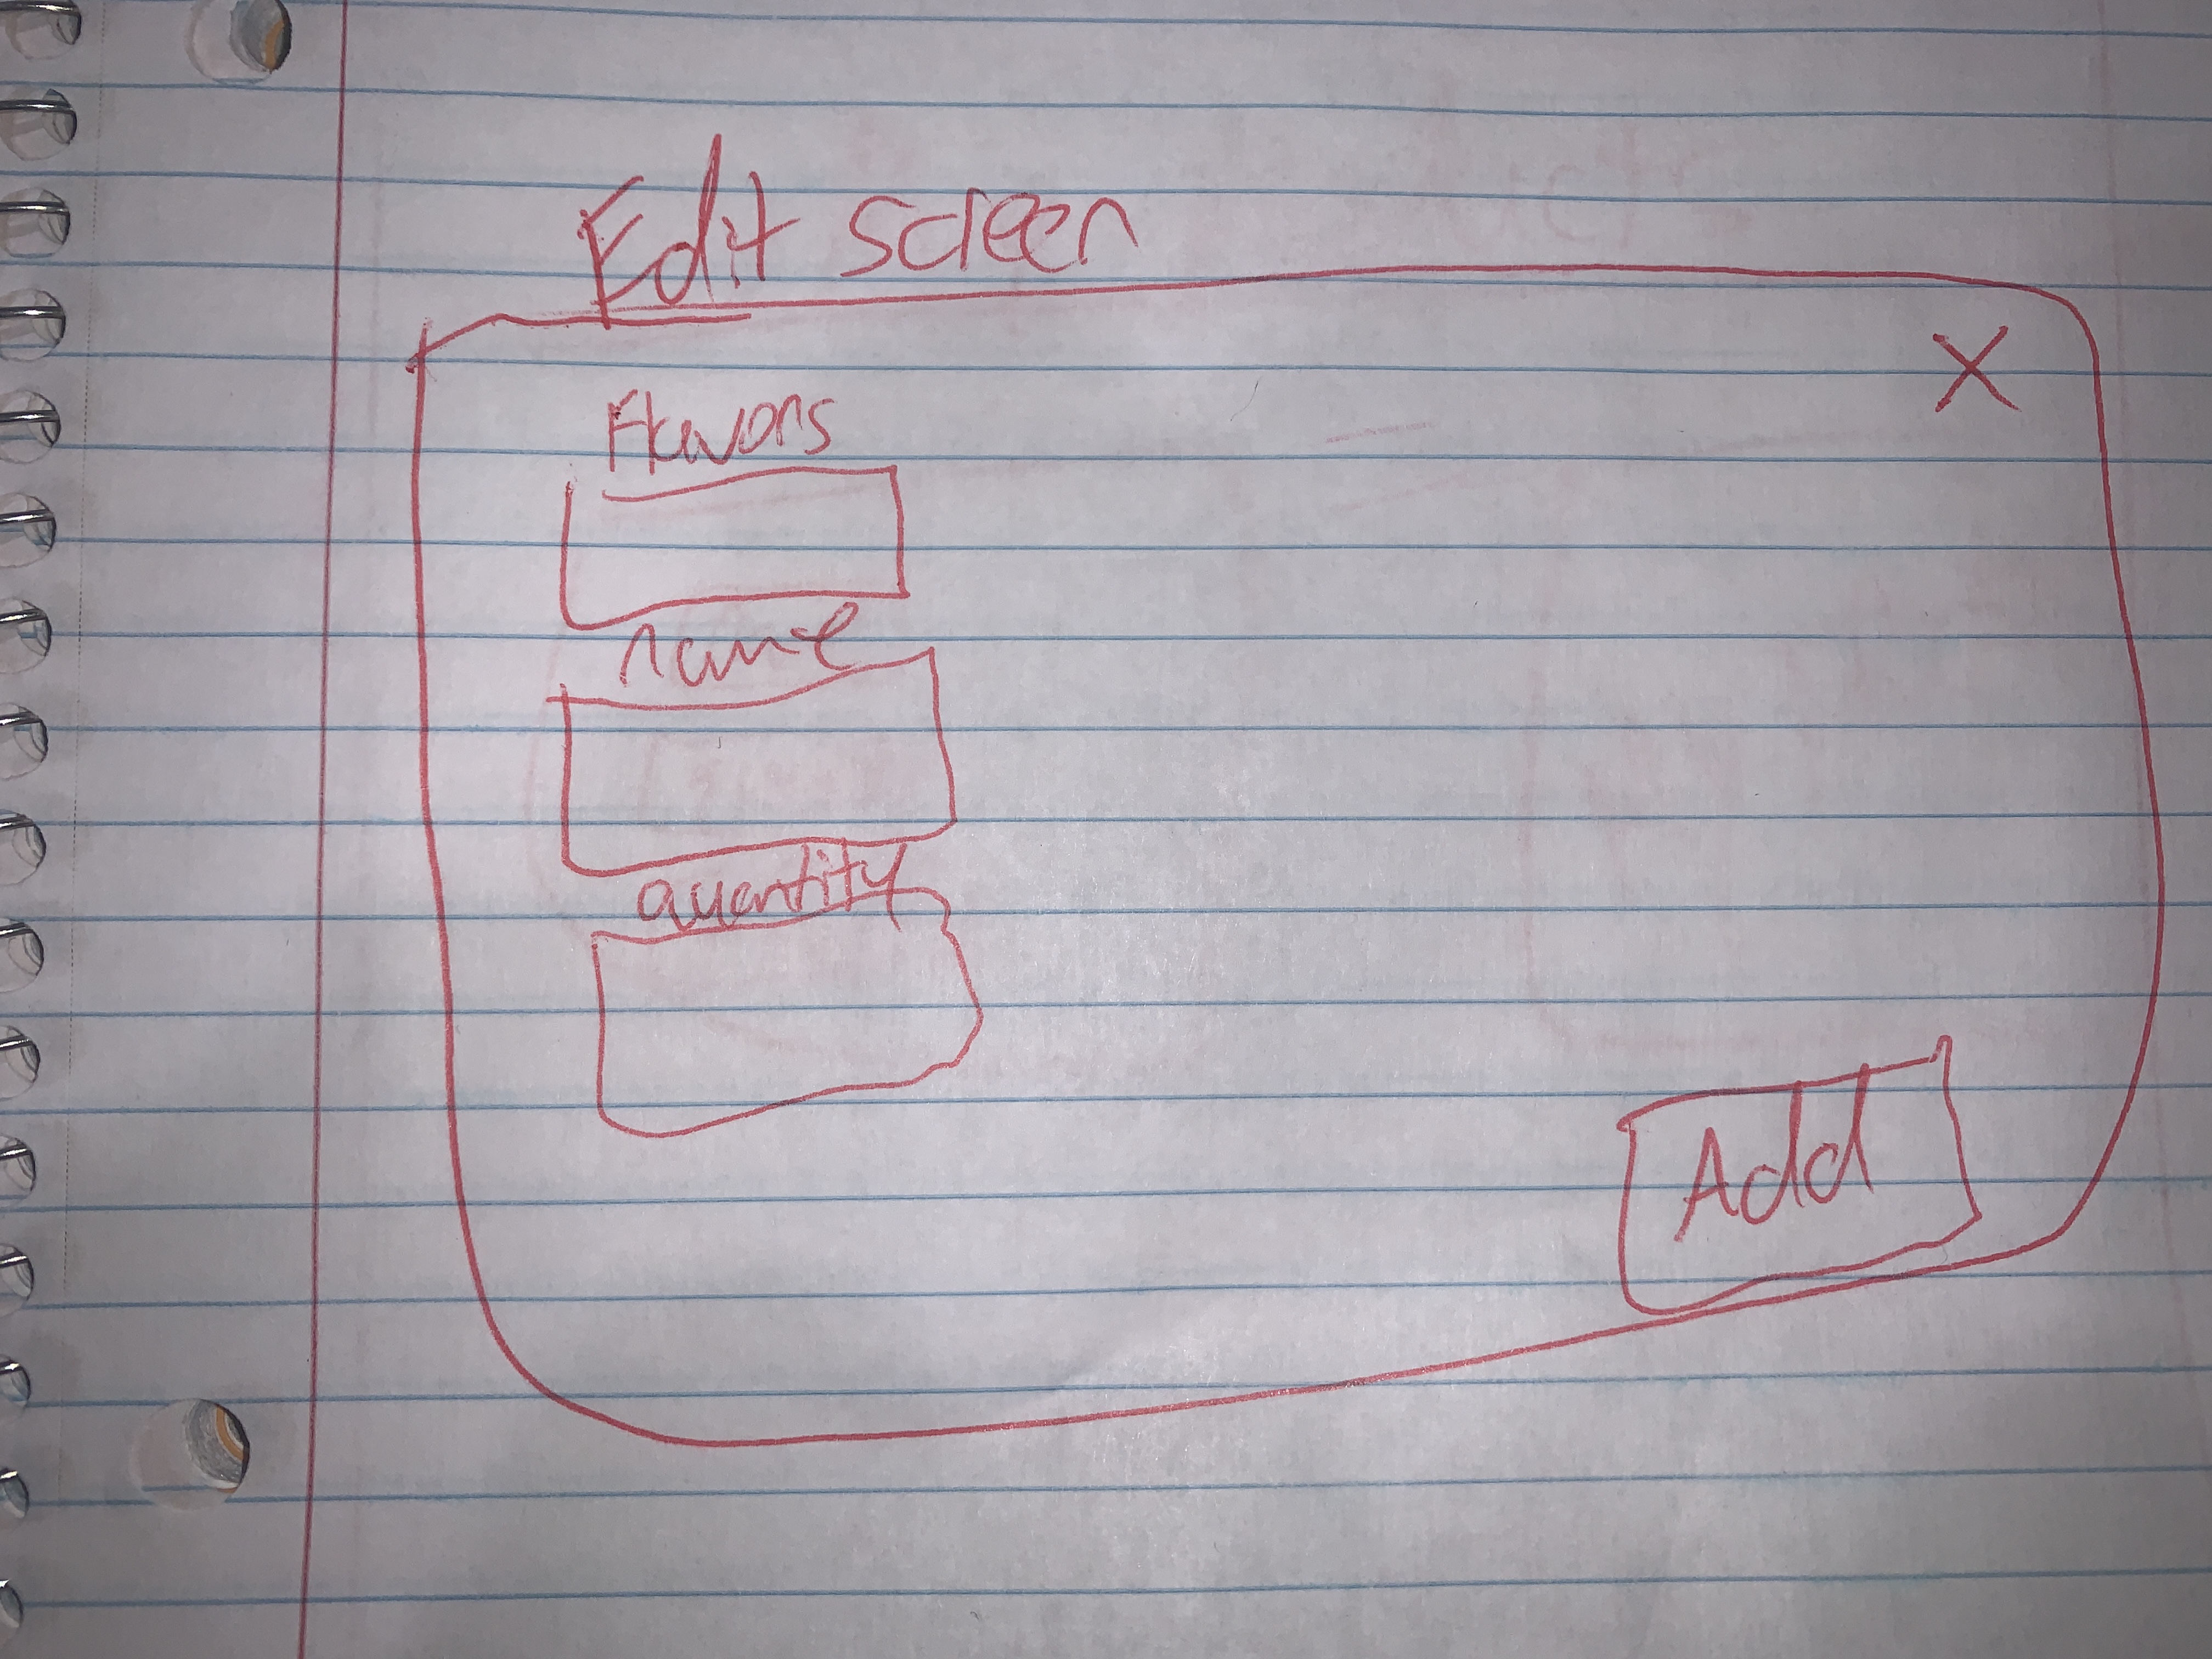 Edit screen
X
Flavors
name
quantity
Add